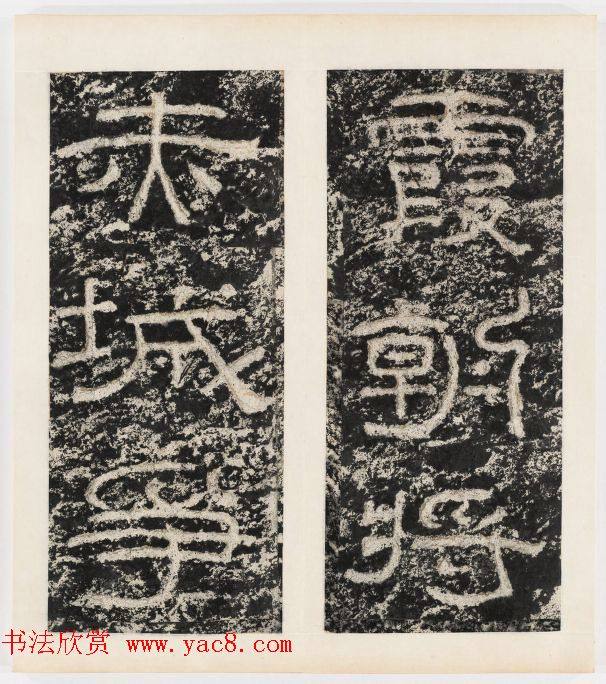 霞朝将
赤城争
书法欣赏 www.yac8.com